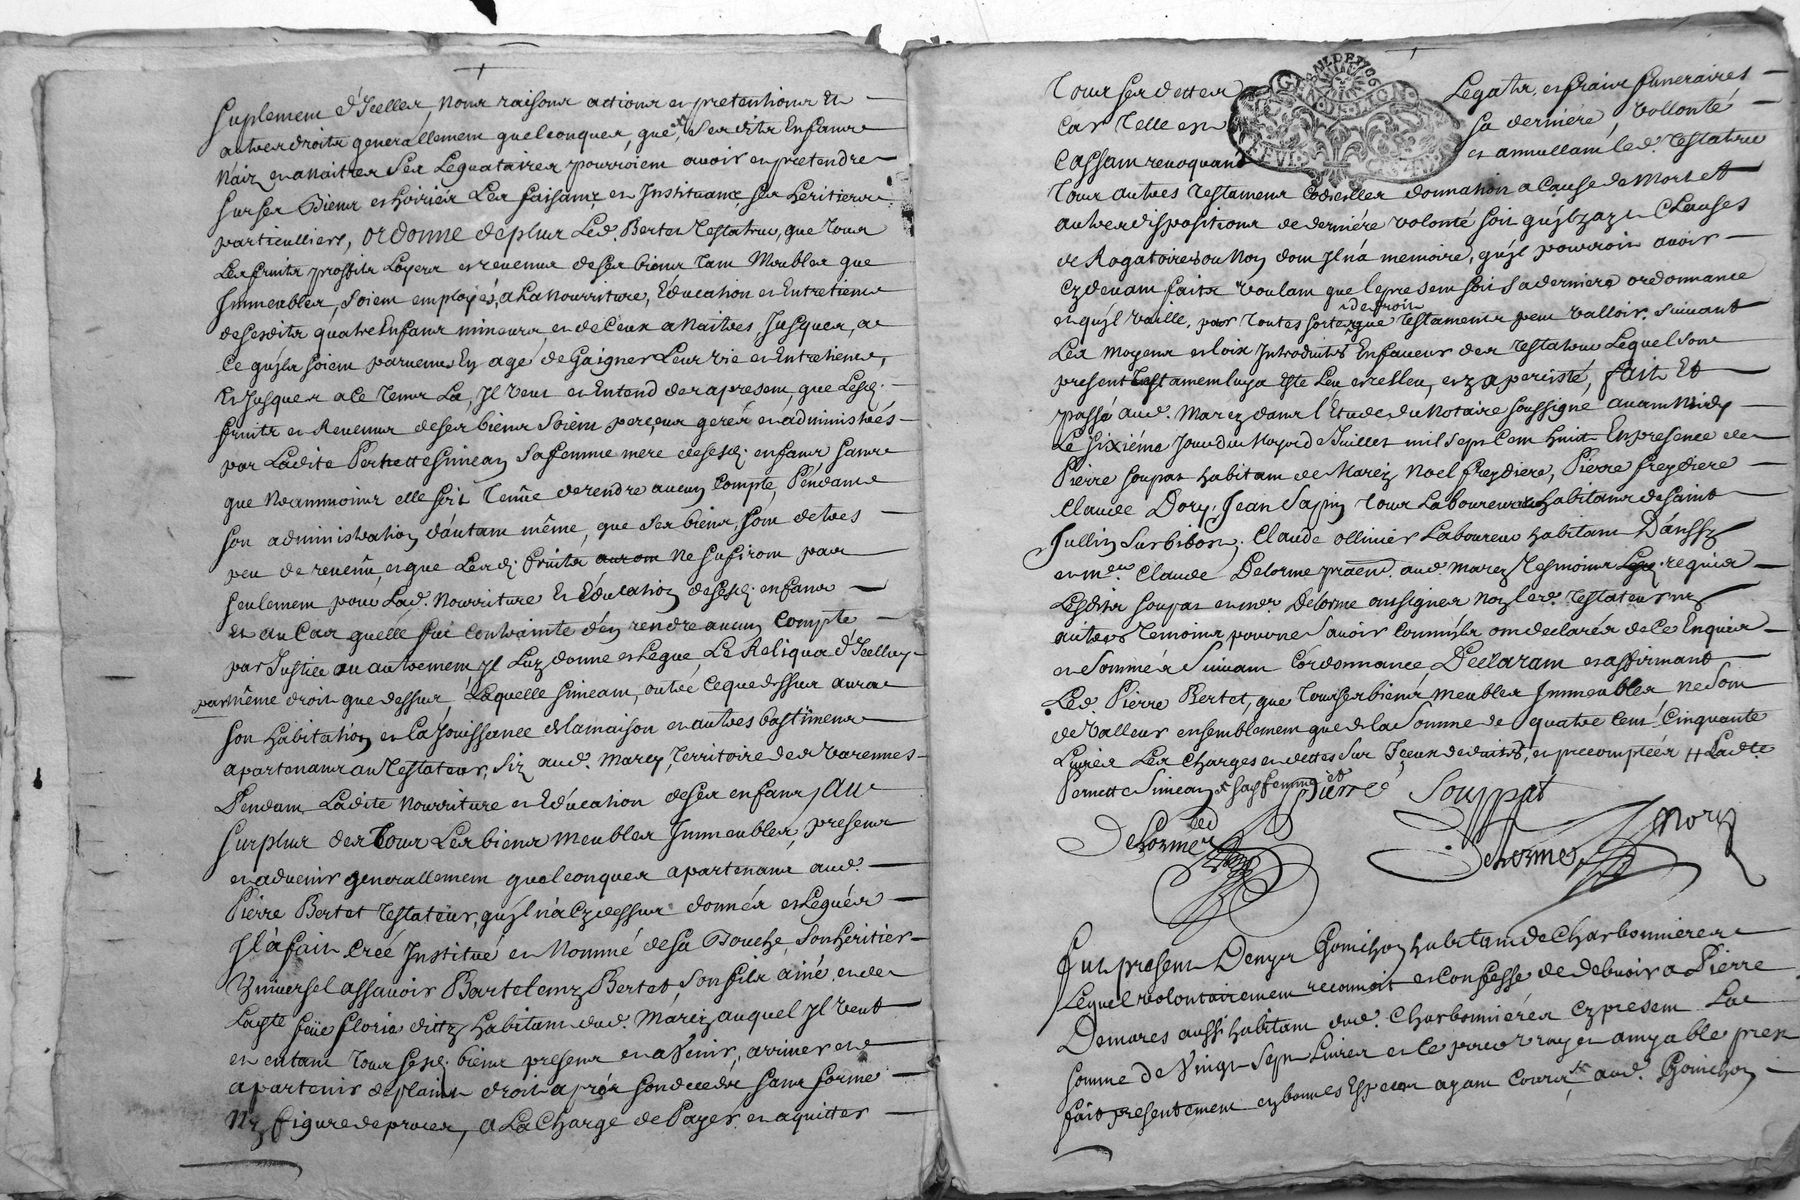 suplement d'Icelles, Nons raisons actions et pretentions et
autres droits generallement quelconques, que sesdits Enfants
Naiz et a naitres ses Leguataires pourroient avoir et pretendre
sur ses Biens et hoiries Les faisant et Instituant ses heritiers
particulliers, ordonne deplus Led. Bertet Testateur, que tous
Les fruits proffits Loyers et revenus de ses biens tant Meubles que
Immeubles, soient employés, a La nourriture, Education et Entretiens
de sesdits quatre Enfans mineurs, et de Ceux a naitres, Jusques, a
Ce quils soient parvenus En age de Gaigner Leur vie et Entretiens,
Et Jusques a ce tems La, Il veut et Entend des apresent, que Lesd.
fruits et Revenus de ses biens soient perçeus gerés et administrés
par Ladite Pernette Simean sa femme mere desesd. enfans sans
que Neanmoins elle soit tenûe de rendre aucun Compte, Pendant
son administration d'autant même, que ses biens, sont de tres
peu de revenû, et que Lesd. fruits auront ne sufiront pas
seulement pour Lad. Nourriture et Education desesd. enfans
Et au Cas quelle fut Contrainte d'en rendre aucun Compte
par Justice ou autrement Il Luy donne et Legue, Le Reliqua d'Icelluy
par même droit que dessus, Laquelle Simean, outre Ceque dessus aura
son habitation et La Jouissance de la maison et autres bastimens
apartenans au Testateur, siz aud. Marcy, Territoire des Varennes
Pendant Ladite Nourriture et Education de ses enfans, Au
surplus de tous Les biens meubles Immeubles, presens
et advenir generallement quelconques apartenans aud.
Pierre Bertet Testateur, quil n'a Cy dessus donnés et Legués
Il à fait Créé Institué et Nommé de sa Bouche, Son heritier
Universel assavoir Bartelemy Bertet, son fils ainé, et de
Laditte feüe Florie dittz habitant dud. Marcy auquel Il veut
et entant tous sesd. biens presens et a Venir, arriver et
apartenir de plain droit apres son deceds sans forme
Ny figure de proces, a La Charge de Payer et aquitter
Tous ses dettes Legats, et fraix funeraires
Car Telle est sa derniere, vollonté
Cassant revoquant et annullant led. Testateur
Tous autres Testamens Codicilles donnation a Cause de Mort et
autres dispositions de derniere volonté soit quil y aye Clauses
de Rogatoires ou Non dont Il n'a memoire, quil pourroit avoir
Cy devant faits voulant que le present soit sa derniere ordonnance
et quil vaille, par toutes sortes de droit que Testament peut valloir. suivant
Les moyens et loix Introduits Enfaveur des Testateurs Lequel son
present Testament luy a este Leu et relleu, et y a persisté, fait Et
passé aud. Marcy dans l'Etude du Notaire soussigné avant Midy
Le sixiéme Jour du Moys de Juillet mil sept Cent huit En presence de
Pierre soupat habitant de Marcy Noel freydiere, Pierre freydiere
Claude Dory, Jean Sapin tous Laboureurs habitans de saint
Jullin sur bibost. Claude ollinier Laboureur habitant Danssy
et me. Claude Delorme praen. aud. Marcy tesmoins requis
Lesdits soupat et me. Delorme ont signes Non led. Testateur ny
autres temoins pour ne savoir Comm'ils ont declares de Ce Enquis
et sommés suivant L'ordonnance Declarant et affirmant
Led Pierre Bertet, que tous ses biens meubles Immeubles ne sont
de Valleur ensemblement que de la somme de quatre cent Cinquante
Livres Les charges et dettes sur Iceux deduits, et precomptées # Ladte
Pernette Simean sa femme Pierre Souppat
Delorme
Delorme
fut present Denys Boinchon habitant de Charbonnieres
Lequel volontairement reconnoit et confesse de debvoir a Pierre
Demares aussi habitant dud. Charbonnieres Cy present La
somme de Vingt Sept Livres et ce pour vray et amyable prest
fait presentement en bonnes Especes ayant Cours aud. Boinchon